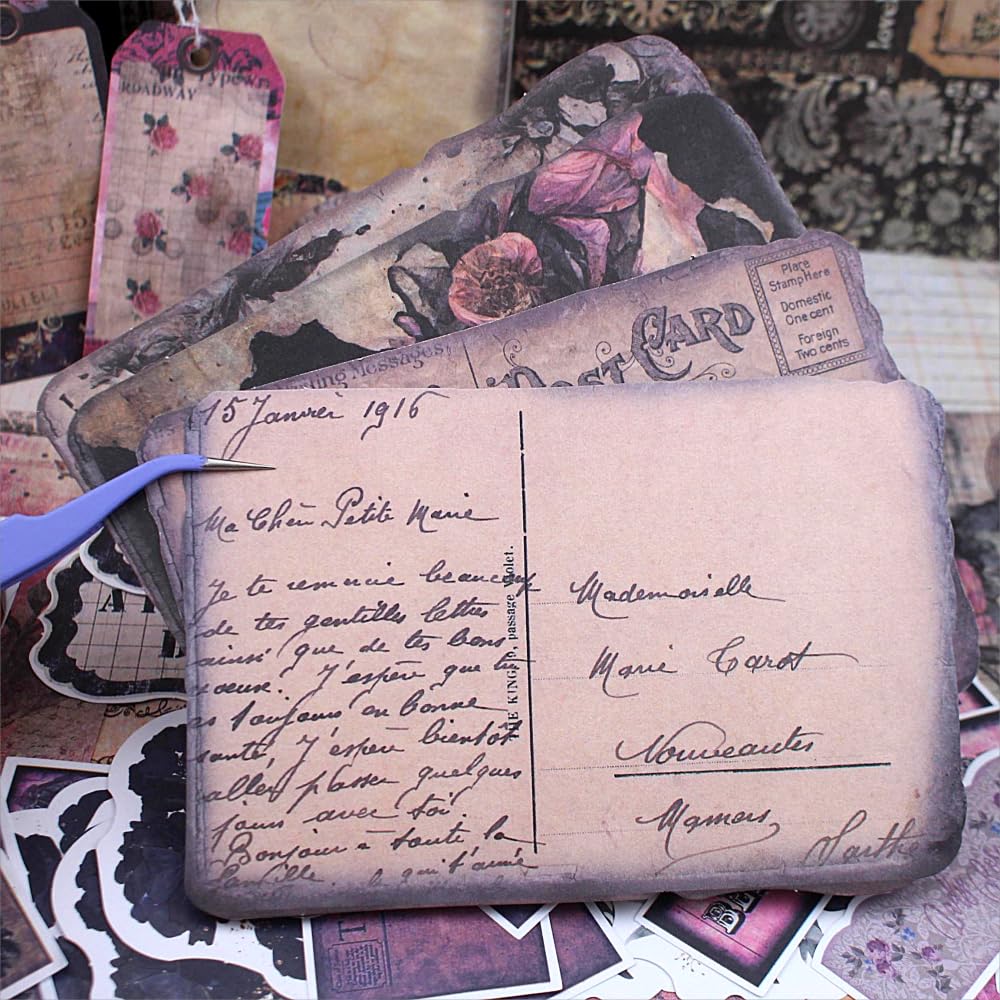 Typewr
ROADWAY
Love
Place
Stamp Here
Domestic
One cent
Foreign
Two cents
POST CARD
Messages
15 Janvier 1916
Ma Chère Petite Marie
Je te remercie beaucoup
de tes gentilles lettres
ainsi que de tes bons
voeux. J'espère que tu
as toujours en bonne
santé, J'espère bientôt
aller passer quelques
jours avec toi.
Bonjour à toute la
famille. qui t'aime
THE KING, passage Violet.
Mademoiselle
Marie Carot
Nouveautés
Mamers
Sarthe